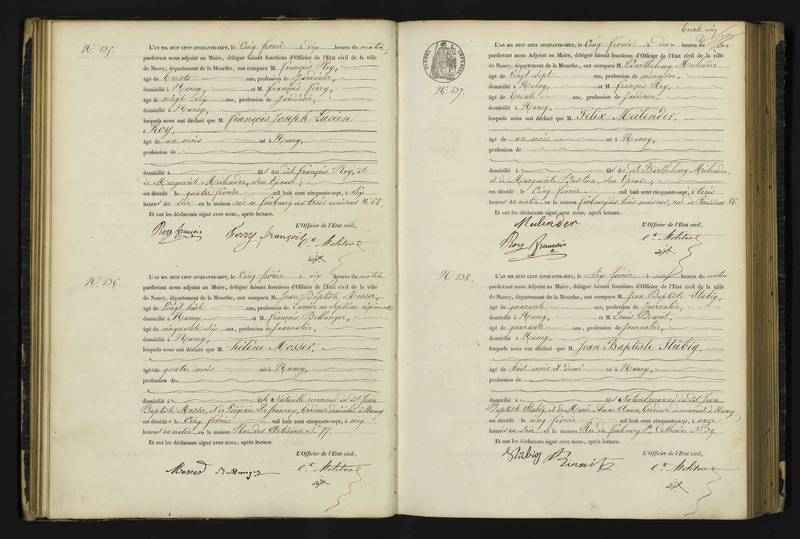 N.º 135.
L'AN MIL HUIT CENT CINQUANTE-SEPT, le Cinq février à dix heures du matin,
pardevant nous adjoint au Maire, délégué faisant fonctions d'Officier de l'État civil de la ville
de Nancy, département de la Meurthe, ont comparu M. François Roy,
âgé de Trente ans, profession de Jardinier,
domicilié à Nancy, et M. François Ferry,
âgé de vingt six ans, profession de Jardinier,
domicilié à Nancy,
lesquels nous ont déclaré que M. François Joseph Lucien
Roy,
âgé de un mois né à Nancy,
profession de
domicilié à fils du dit François Roy, et
de Marguerite Mulender, son Epouse,
est décédé le quatre février mil huit cent cinquante-sept, à six
heures du soir en la maison rue du faubourg des trois maisons Nº 68.
Et ont les déclarants signé avec nous, après lecture.
L'Officier de l'État civil,
Roy françois Ferry françois
N.º 136.
L'AN MIL HUIT CENT CINQUANTE-SEPT, le Cinq février à dix heures du matin
pardevant nous adjoint au Maire, délégué faisant fonctions d'Officier de l'État civil de la ville
de Nancy, département de la Meurthe, ont comparu M. Jean Baptiste Mosser,
âgé de Vingt huit ans, profession de Lancier au Septième régiment
domicilié à Nancy et M. François Bellanger,
âgé de cinquante six ans, profession de Journalier,
domicilié à Nancy,
lesquels nous ont déclaré que M. Hélène Mosser,
âgée de quatre mois née à Nancy,
profession de
domicilié à fille Naturelle reconnue du dit Jean
Baptiste Mosser, et de domiciliée à Nancy
est décédée le Cinq février mil huit cent cinquante-sept, à cinq
heures du matin en la maison Rue des Artisans, Nº 77.
Et ont les déclarants signé avec nous, après lecture.
L'Officier de l'État civil,
Mosser
N.º 137.
L'AN MIL HUIT CENT CINQUANTE-SEPT, le Cinq février à deux heures du soir
pardevant nous adjoint au Maire, délégué faisant fonctions d'Officier de l'État civil de la ville
de Nancy, département de la Meurthe, ont comparu M. Barthélemy Mulender
âgé de Vingt sept ans, profession de menuisier,
domicilié à Nancy, et M. François Roy,
âgé de Trente ans, profession de Jardinier,
domicilié à Nancy,
lesquels nous ont déclaré que M. Félix Mulender,
âgé de un mois né à Nancy,
profession de
domicilié à fils du dit Barthélemy Mulender,
et de Marguerite Bastien, son Epouse,
est décédé le Cinq février mil huit cent cinquante-sept, à trois
heures du matin en la maison faubourg des trois maisons, 86.
Et ont les déclarants signé avec nous, après lecture.
Mulender L'Officier de l'État civil,
Roy françois
N.º 138.
L'AN MIL HUIT CENT CINQUANTE-SEPT, le Six février à neuf heures du matin
pardevant nous adjoint au Maire, délégué faisant fonctions d'Officier de l'État civil de la ville
de Nancy, département de la Meurthe, ont comparu M. Jean Baptiste Stübig,
âgé de quarante ans, profession de Journalier,
domicilié à Nancy, et M. Louis Benoit,
âgé de quarante ans, profession de Journalier,
domicilié à Nancy,
lesquels nous ont déclaré que M. Jean Baptiste Stübig,
âgé de huit mois et demi né à Nancy,
profession de
domicilié à fils Naturel reconnu du dit Jean
Baptiste Stübig, et de Marie Anne demeurant à Nancy
est décédé le cinq février mil huit cent cinquante-sept, à onze
heures du soir en la maison Rue du faubourg Ste Catherine Nº 39.
Et ont les déclarants signé avec nous, après lecture.
L'Officier de l'État civil,
Stübig Benoit